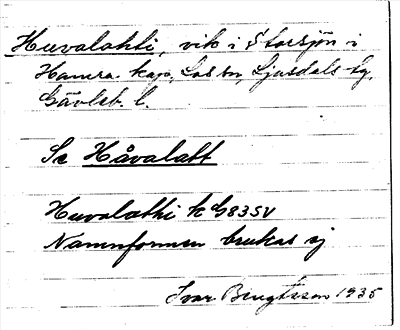 Huvalahti, vik i Storsjön i
Hamra kap., Los sn, Ljusdals tg,
Gävleb. l.
Se Håvalatt
Huvalathi k G835V
Namnformen brukas ej
Ivar Bengtsson 1935